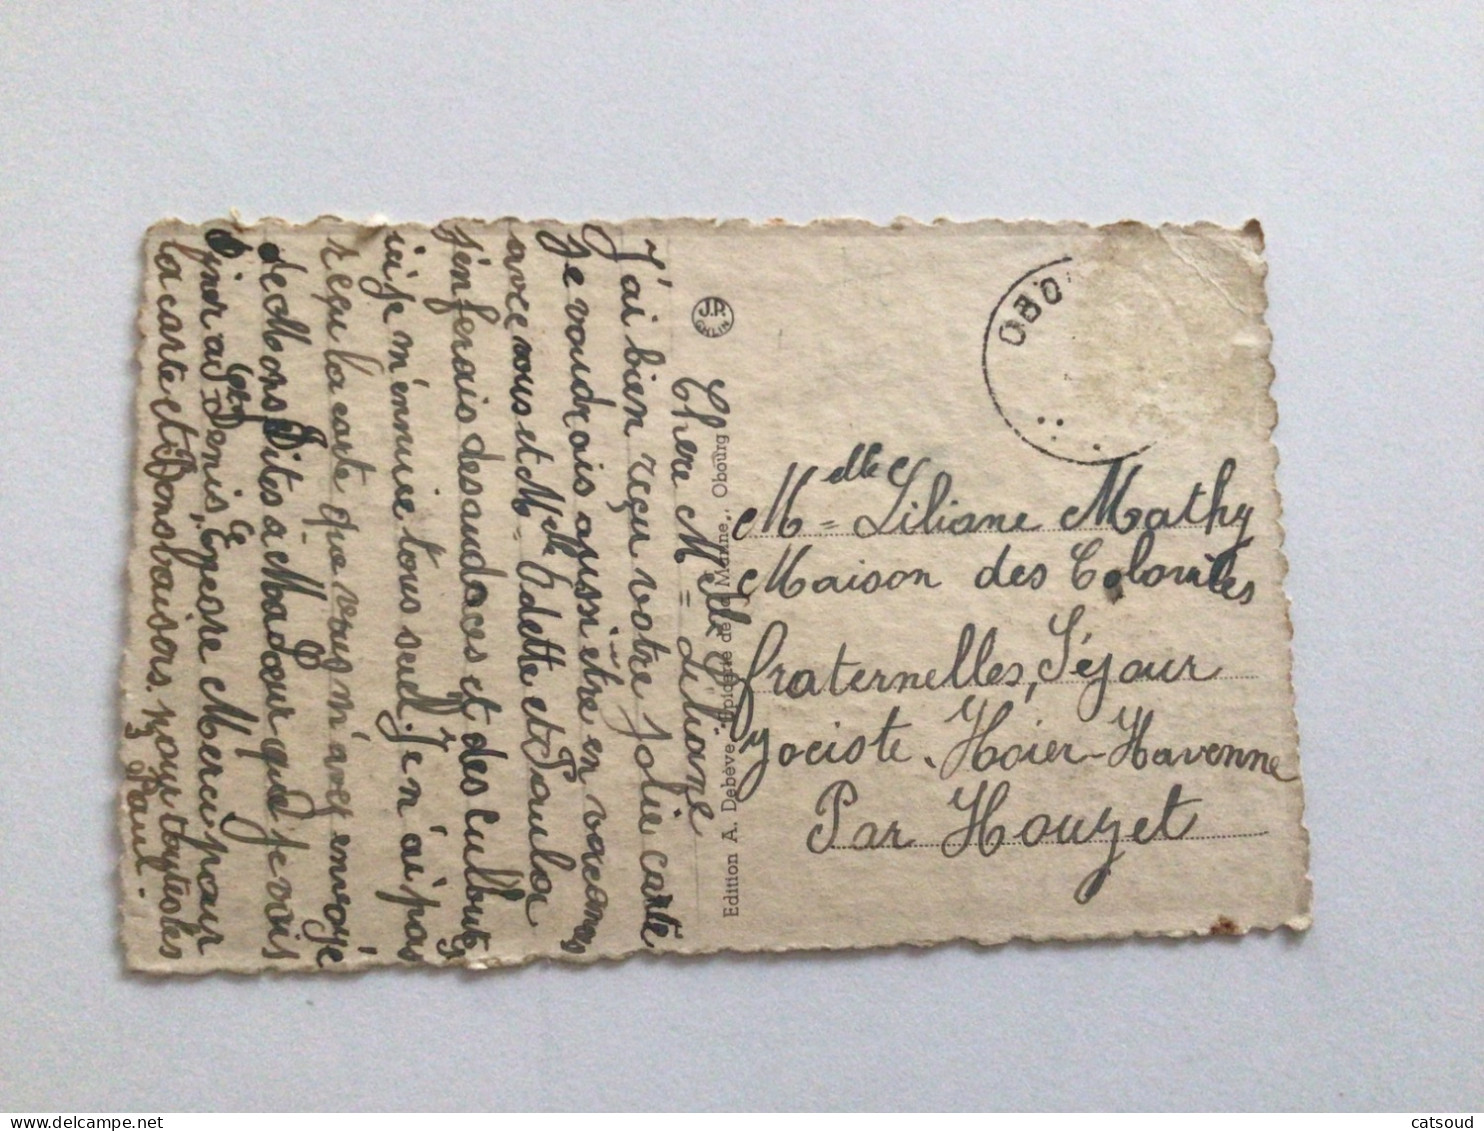 Chère Melle Liliane
J'ai bien reçu votre jolie carte
je voudrais aussi être en vacances
avec vous et Melle Odette et Paula
j'en ferais des audaces et des culbutes
ici je m'ennuie tous seul. Je n'ai pas
reçu la carte que vous m'avez envoyé
de Mons Dites à Madame que je vais
diner au Denis, Merci pour
la carte et Bons baisers. pour toutes les
Paul.
J.P.
GHLIN
Edition A. Debève, Epicerie de la Marine., Obourg
OBO
Melle Liliane Mathy
Maison des Colonies
fraternelles, Séjour
Jociste. Hoier-Havenne
Par Houyet
catsoud